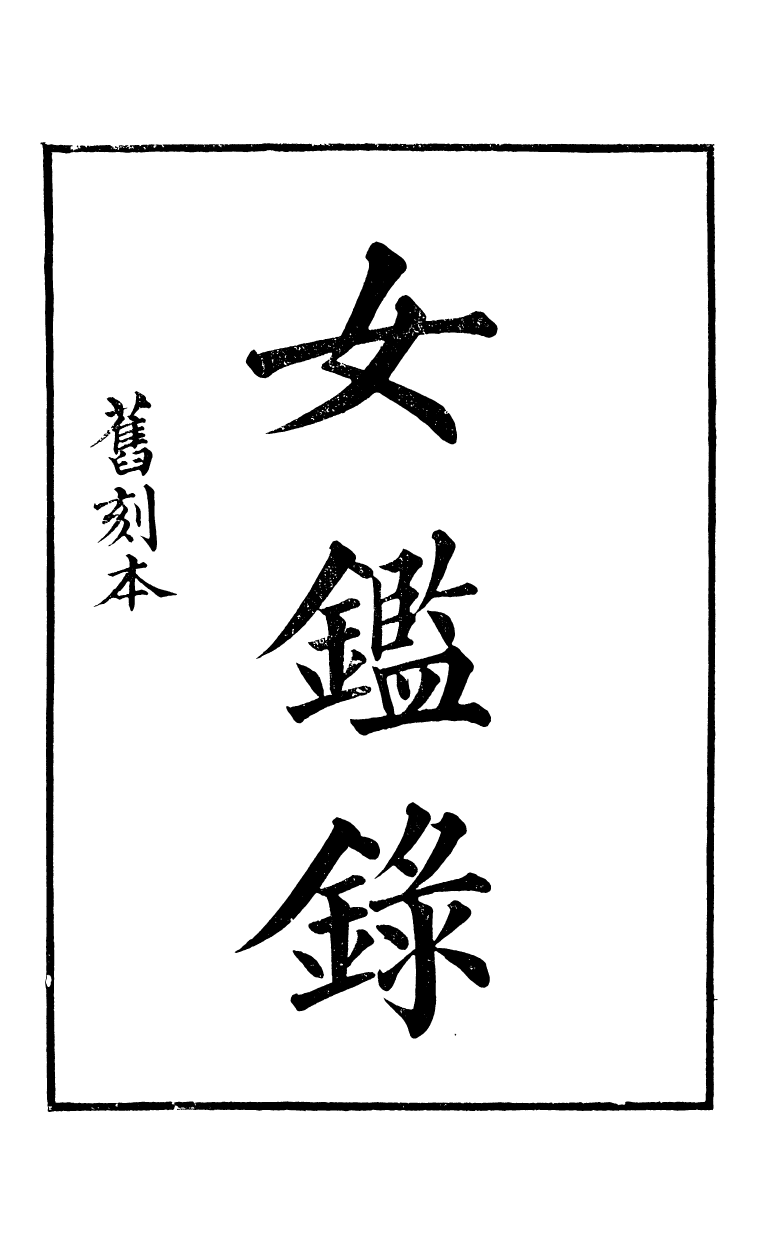 女鑑錄
舊刻本